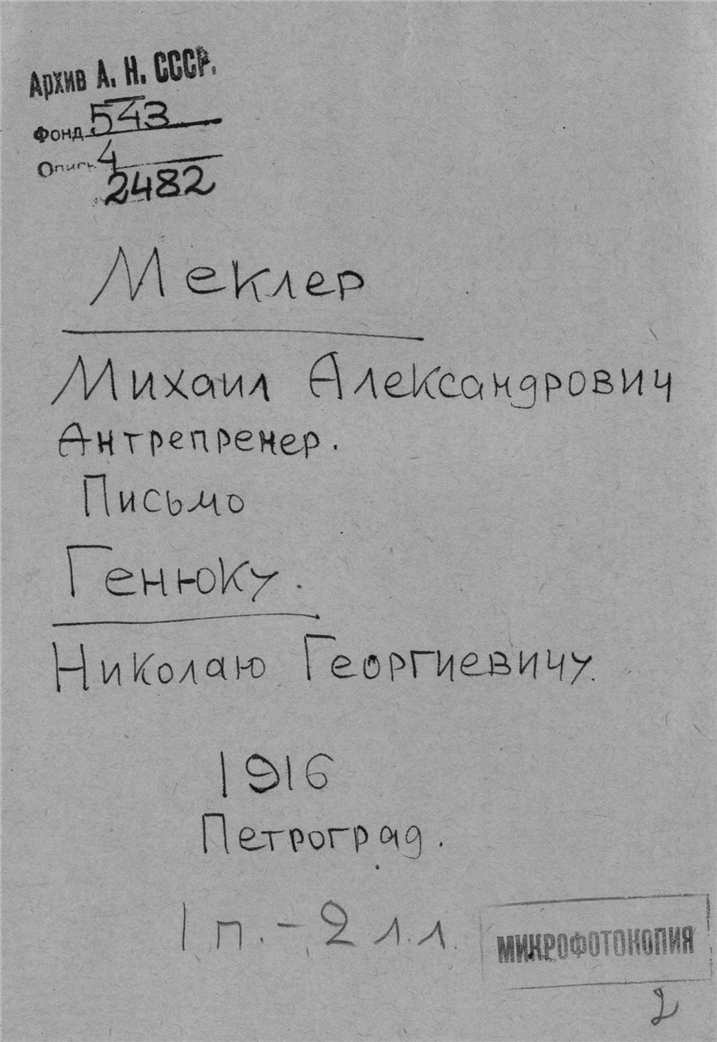 Архив А. Н. СССР.
Фонд 543
Опись 4
2482
Меклер
Михаил Александрович
Антрепренер.
Письмо
Генюку.
Николаю Георгиевичу.
1916
Петроград.
1 п. - 2 л.л.
МИКРОФОТОКОПИЯ
2